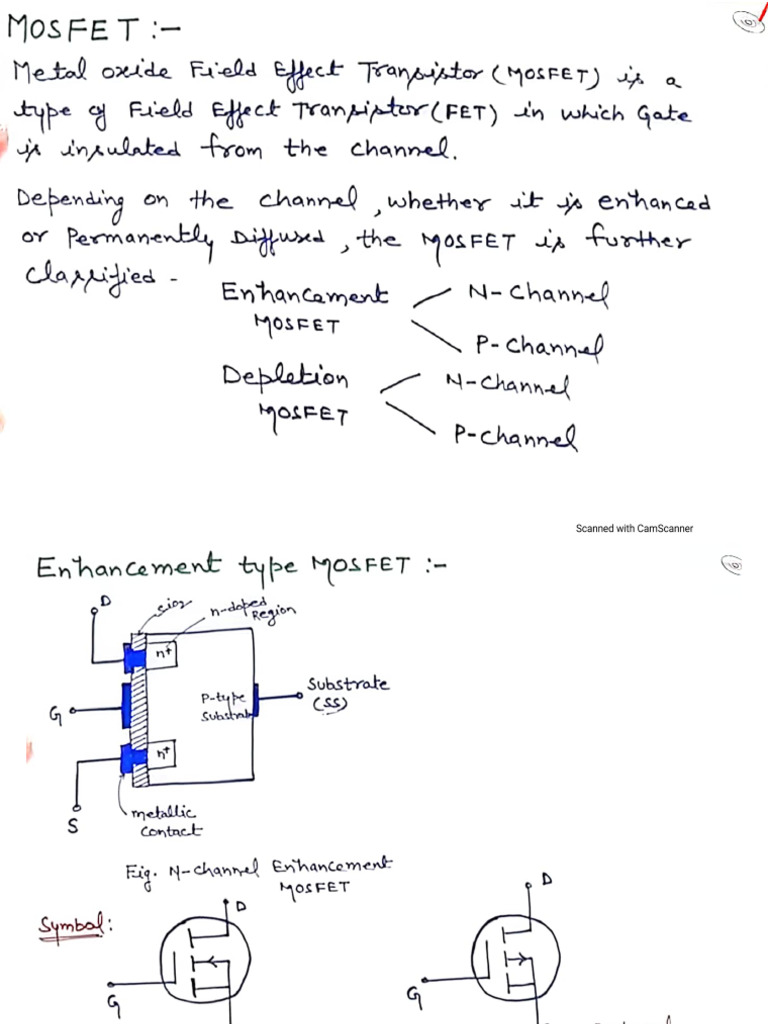 MOSFET :-
Metal oxide Field Effect Transistor (MOSFET) is a
type of Field Effect Transistor (FET) in which Gate
is insulated from the channel.
Depending on the channel, whether it is enhanced
or Permanently Diffused, the MOSFET is further
classified -
Enhancement MOSFET
N-Channel
P-Channel
Depletion MOSFET
N-Channel
P-Channel
Scanned with CamScanner
Enhancement type MOSFET :-
D
SiO2
n-doped Region
n+
G
P-type
Substrate
Substrate
(SS)
n+
S
metallic
contact
Fig. N-channel Enhancement
MOSFET
Symbol:
D
G
D
G